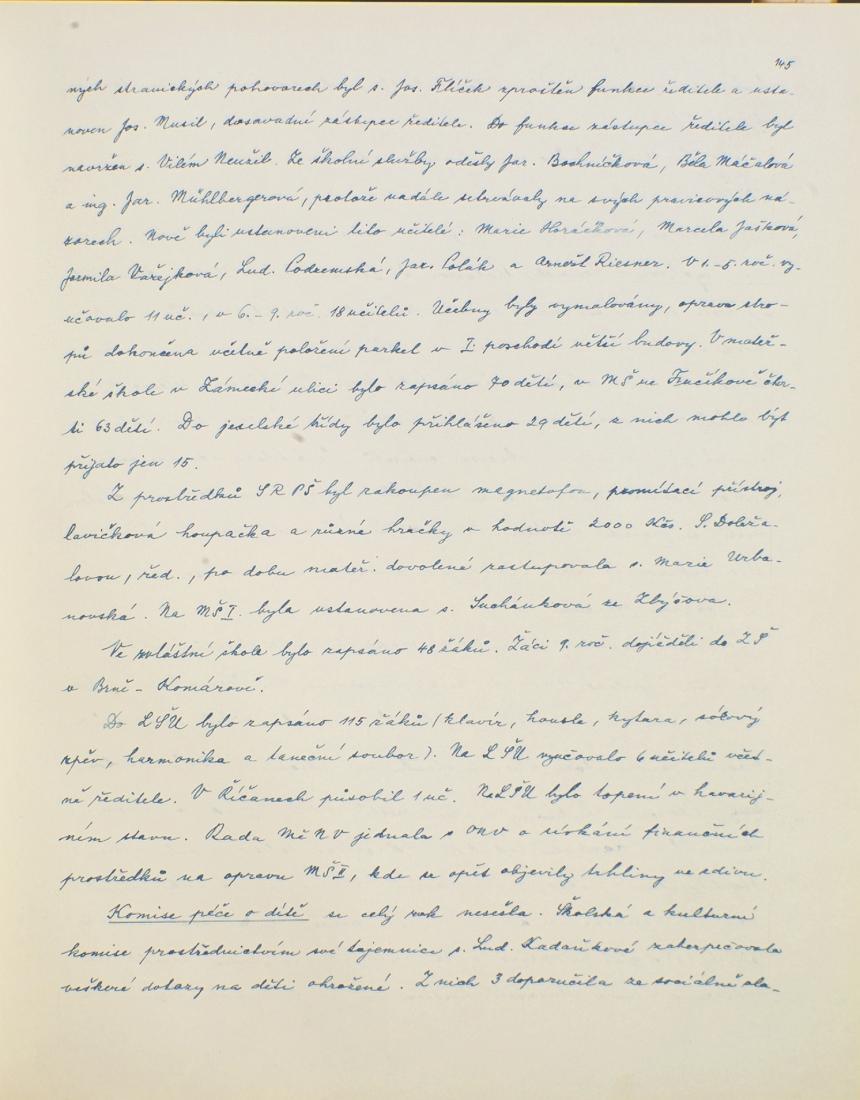 145
ných stranických pohovorech byl s. Jos. Flíček zproštěn funkce ředitele a usta-
noven Jos. Musil, dosavadní zástupce ředitele. Do funkce zástupce ředitele byl
navržen s. Vilém Neužil. Ze školní služby odešly Jar. Bochníčková, Běla Máčalová
a ing. Jar. Mühlbergerová, protože nadále setrvávaly na svých pravicových ná-
zorech. Nově byli ustanoveni tito učitelé: Marie Horáčková, Marcela Jašková,
Jarmila Vařejková, Lud. Podzemská, Jar. Polák a Arnošt Riesner. V 1.-5. roč. vy-
učovalo 11 uč., v 6.-9. roč. 18 učitelů. Učebny byly vymalovány, oprava stro-
pů dokončena včetně položení parket v I. poschodí větší budovy. V mateř-
ské škole v Zámecké ulici bylo zapsáno 70 dětí, v MŠ ve Fučíkově čtvr-
ti 63 dětí. Do jeselské třídy bylo přihlášeno 29 dětí, z nich mohlo být
přijato jen 15.
Z prostředků SRPŠ byl zakoupen magnetofon, promítací přístroj,
lavičková houpačka a různé hračky v hodnotě 2000 Kčs. S. Doleža-
lovou, řed., po dobu mateř. dovolené zastupovala s. Marie Urba-
novská. Na MŠ I. byla ustanovena s. Suchánková ze Zbýšova.
Ve zvláštní škole bylo zapsáno 48 žáků. Žáci 9. roč. dojížděli do ZŠ
v Brně - Komárově.
Do LŠU bylo zapsáno 115 žáků (klavír, housle, kytara, sólový
zpěv, harmonika a taneční soubor). Na LŠU vyučovalo 6 učitelů včet-
ně ředitele. V Říčanech působil 1 uč. Na LŠU bylo topení v havarij-
ním stavu. Rada MěNV jednala s ONV o získání finančních
prostředků na opravu MŠ II, kde se opět objevily trhliny ve zdivu.
Komise péče o dítě se celý rok nesešla. Školská a kulturní
komise prostřednictvím své tajemnice s. Lud. Kadaňkové zabezpečovala
veškeré dotazy na děti ohrožené. Z nich 3 doporučila ze sociálně sla-